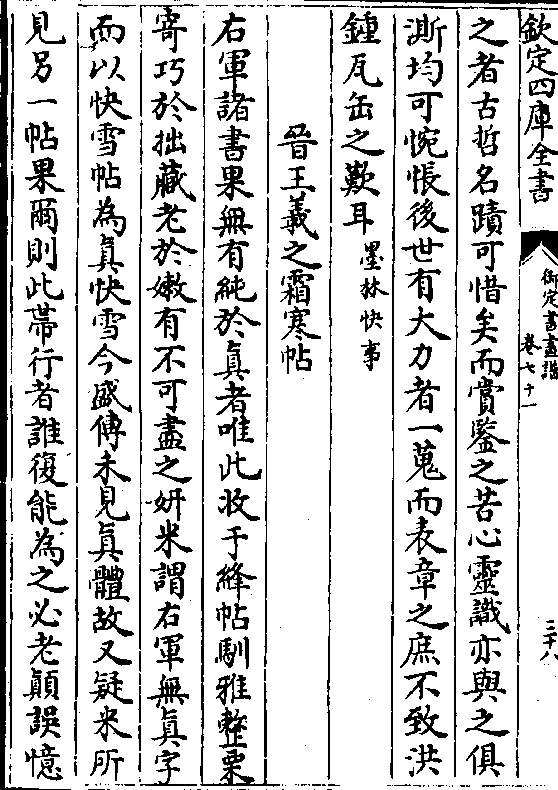 欽定四庫全書
御定書畫譜
卷七十一
三十八
之者古哲名蹟可惜矣而賞鑒之苦心靈識亦與之俱
澌均可惋悵後世有大力者一蒐而表章之庶不致洪
鍾瓦缶之歎耳墨林快事
晉王羲之霜寒帖
右軍諸書果無有純於真者唯此收于絳帖馴雅整栗
寄巧於拙藏老於嫩有不可盡之妍米謂右軍無真字
而以快雪帖為真快雪今盛傳未見真體故又疑米所
見另一帖果爾則此帶行者誰復能為之必老顛誤憶